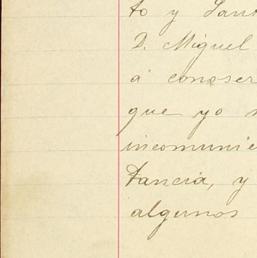 to y Sant
D. Miguel
á conoser
que yo
incomunic
tancia, y
algunos